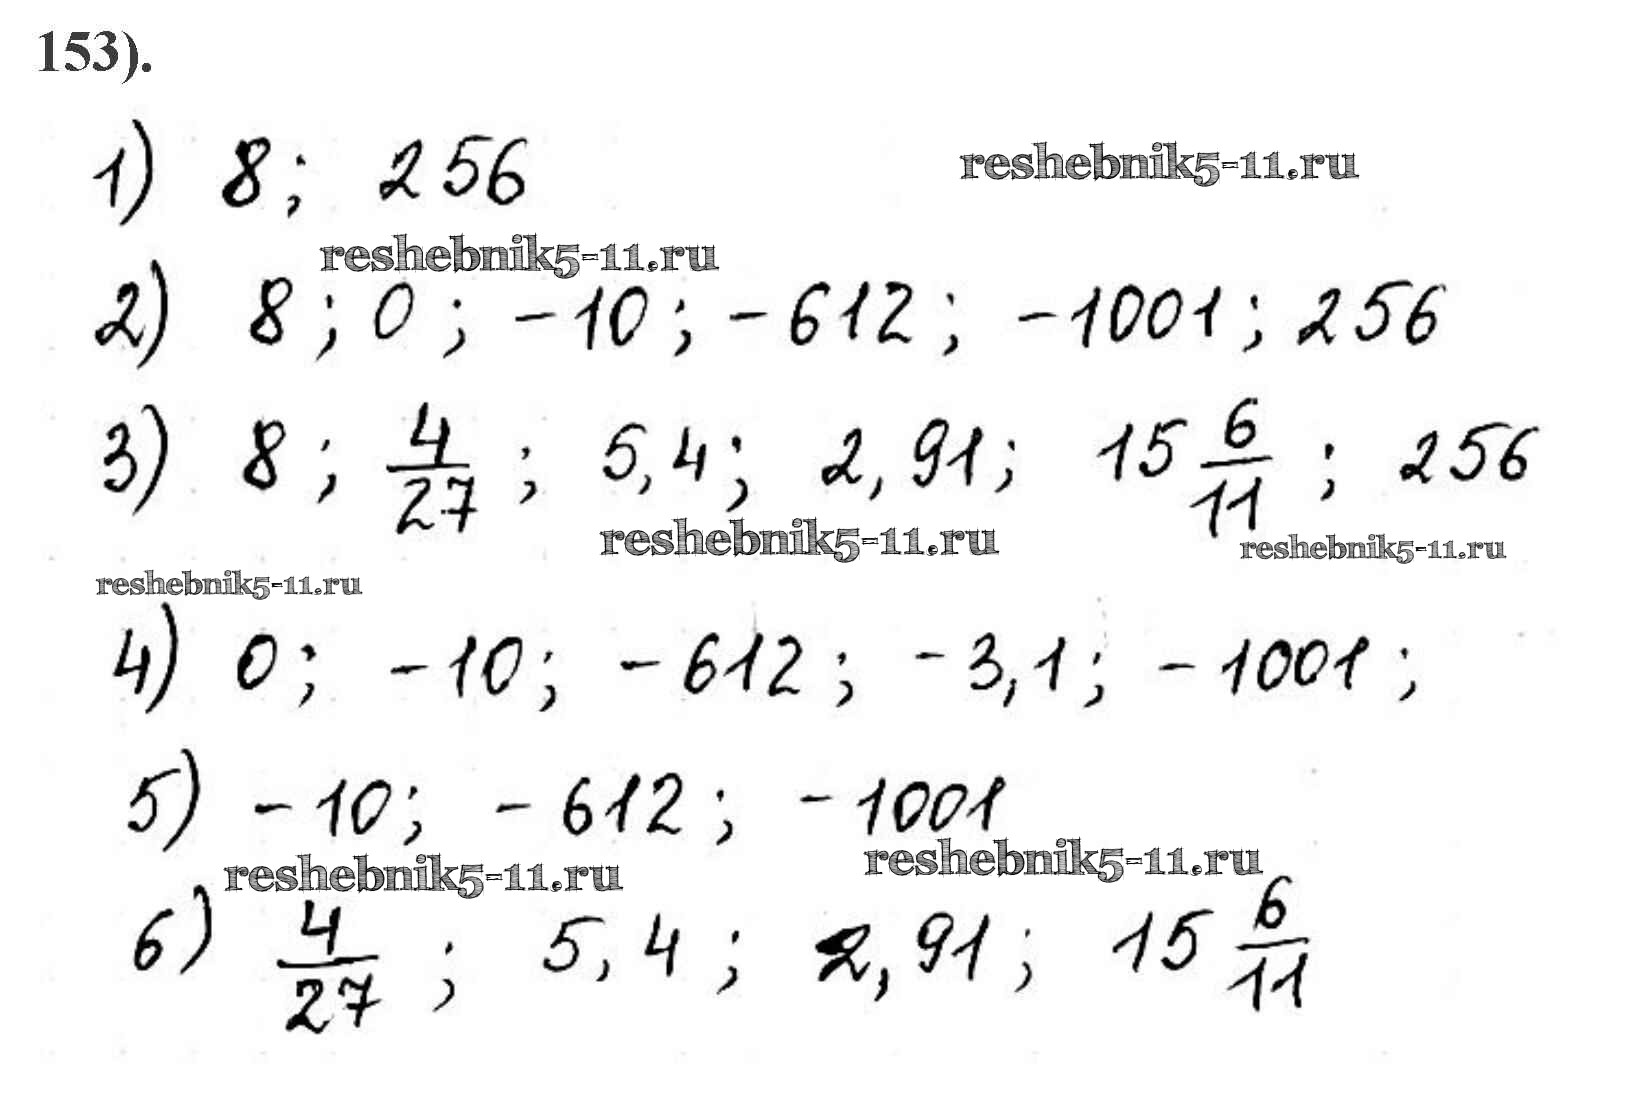 153).
1) 8; 256
reshebnik5-11.ru
reshebnik5-11.ru
2) 8; 0; -10; -612; -1001; 256
3) 8; 4/27; 5,4; 2,91; 15 6/11; 256
reshebnik5-11.ru
reshebnik5-11.ru
reshebnik5-11.ru
4) 0; -10; -612; -3,1; -1001;
5) -10; -612; -1001
reshebnik5-11.ru
reshebnik5-11.ru
6) 4/27; 5,4; 2,91; 15 6/11